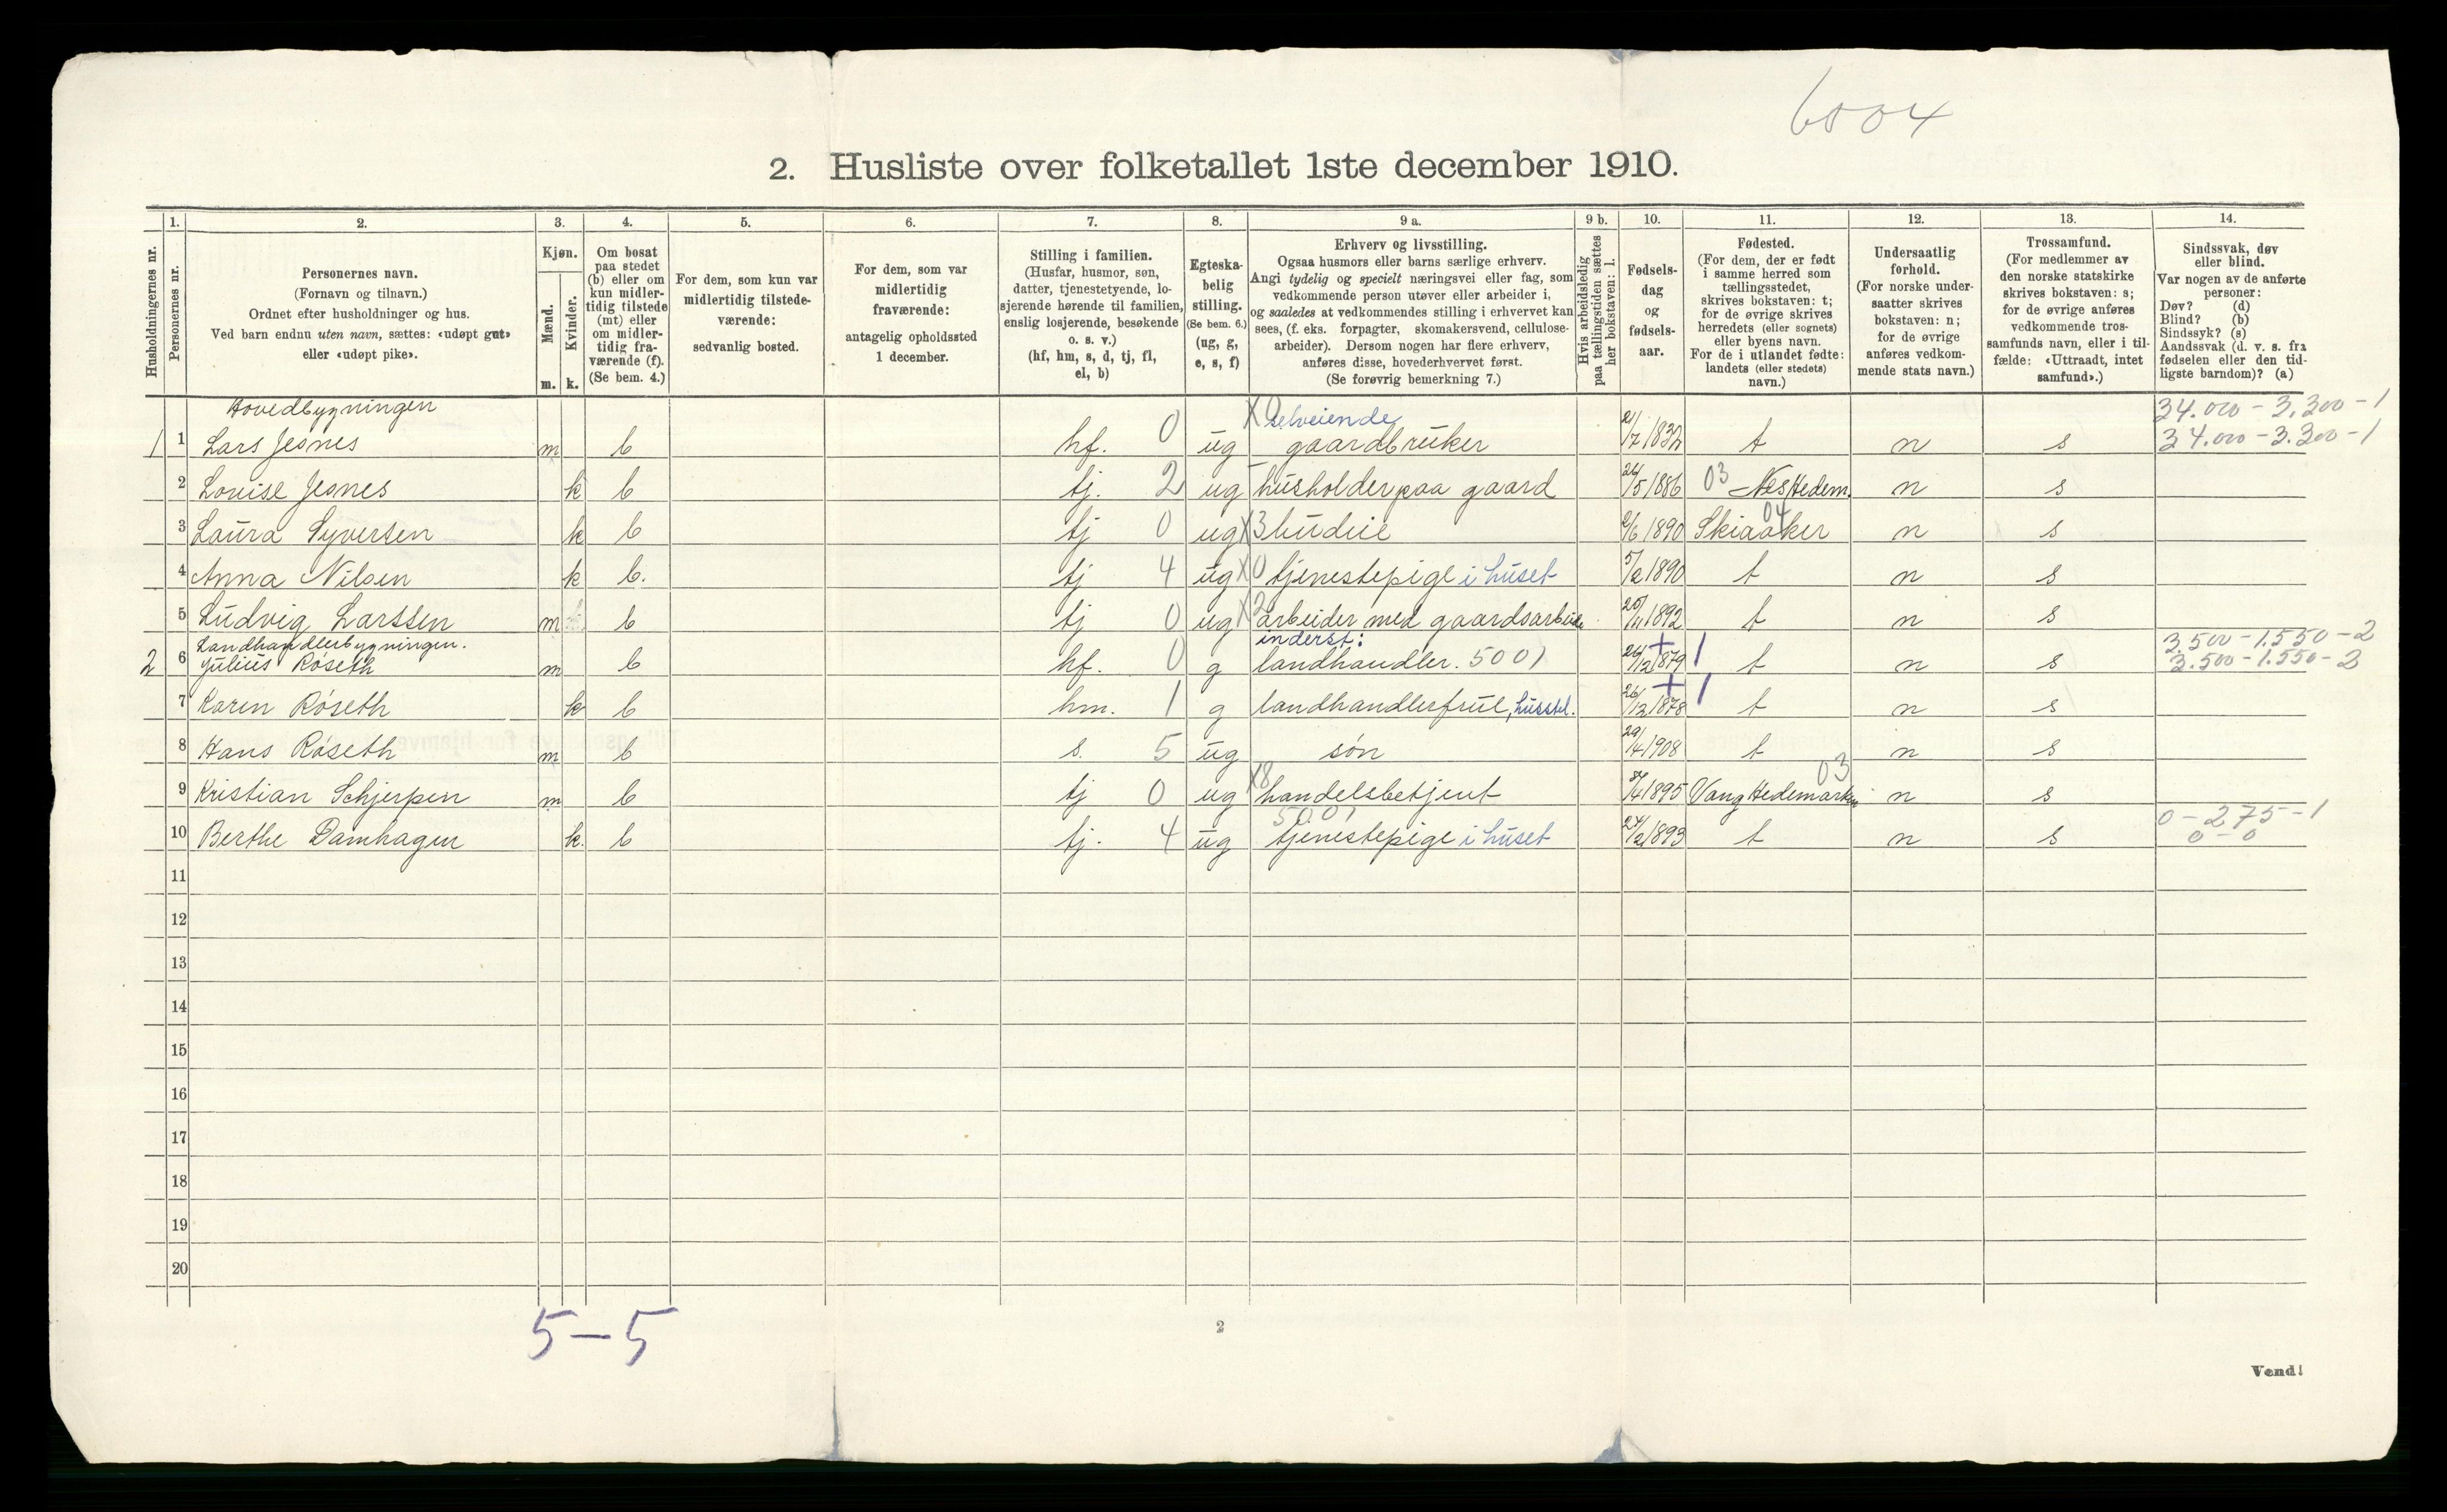 6004
2. Husliste over folketallet 1ste december 1910.
1. 2. 3. 4. 5. 6. 7. 8. 9 a. 9 b. 10. 11. 12. 13. 14.
Husholdningernes nr.
Personernes nr.
Personernes navn.
(Fornavn og tilnavn.)
Ordnet efter husholdninger og hus.
Ved barn endnu uten navn, sættes: «udøpt gut»
eller «udøpt pike».
Kjøn.
Mænd.
Kvinder.
m. k.
Om bosat
paa stedet
(b) eller om
kun midler-
tidig tilstede
(mt) eller
om midler-
tidig fra-
værende (f).
(Se bem. 4.)
For dem, som kun var
midlertidig tilstede-
værende:
sedvanlig bosted.
For dem, som var
midlertidig
fraværende:
antagelig opholdssted
1 december.
Stilling i familien.
(Husfar, husmor, søn,
datter, tjenestetyende, lo-
sjerende hørende til familien,
enslig losjerende, besøkende
o. s. v.)
(hf, hm, s, d, tj, fl,
el, b)
Egteska-
belig
stilling.
(Se bem. 6.)
(ug, g,
e, s, f)
Erhverv og livsstilling.
Ogsaa husmors eller barns særlige erhverv.
Angi tydelig og specielt næringsvei eller fag, som
vedkommende person utøver eller arbeider i,
og saaledes at vedkommendes stilling i erhvervet kan
sees, (f. eks. forpagter, skomakersvend, cellulose-
arbeider). Dersom nogen har flere erhverv,
anføres disse, hovederhvervet først.
(Se forøvrig bemerkning 7.)
Hvis arbeidsledig
paa tællingstiden sættes
her bokstaven: l.
Fødsels-
dag
og
fødsels-
aar.
Fødested.
(For dem, der er født
i samme herred som
tællingsstedet,
skrives bokstaven: t;
for de øvrige skrives
herredets (eller sognets)
eller byens navn.
For de i utlandet fødte:
landets (eller stedets)
navn.)
Undersaatlig
forhold.
(For norske under-
saatter skrives
bokstaven: n;
for de øvrige
anføres vedkom-
mende stats navn.)
Trossamfund.
(For medlemmer av
den norske statskirke
skrives bokstaven: s;
for de øvrige anføres
vedkommende tros-
samfunds navn, eller i til-
fælde: «Uttraadt, intet
samfund».)
Sindssvak, døv
eller blind.
Var nogen av de anførte
personer:
Døv? (d)
Blind? (b)
Sindssyk? (s)
Aandssvak (d. v. s. fra
fødselen eller den tid-
ligste barndom)? (a)
Hovedbygningen X 0 selveiende 34.000 - 3.300 - 1
1 1 Lars Jesnes m b hf. 0 ug gaardbruker 2/7 1832 t n s 34.000 - 3.300 - 1
2 Louise Jesnes k b tj. 2 ug husholder paa gaard 24/5 1886 03 Nes Hedem. n s
3 Laura Syversen k b tj 0 ug X3 budeie 2/6 1890 Skiaaker 04 n s
4 Anna Nilsen k b. tj 4 ug X0 tjenestepige i huset 5/2 1890 t n s
5 Ludvig Larssen m b tj 0 ug X2 arbeider med gaardsarbeide 20/11 1892 t n s
Landhandlerbygningen. inderst: 3.500 - 1.550 - 2
2 6 Julius Røseth m b hf. 0 g landhandler. 5001 24/12 1879 + 1 t n s 3.500 - 1.550 - 2
7 Karen Røseth k b hm. 1 g landhandlerfrue, husstel. 26/12 1878 + 1 t n s
8 Hans Røseth m b s. 5 ug søn 29/4 1908 t n s
9 Kristian Schjerpen m b tj 0 ug X8 handelsbetjent 1895 Vang Hedemarken 03 n s
5001 0 - 275 - 1
10 Berthe Damhagen k. b tj. 4 ug tjenestepige i huset 24/2 1893 t n s 0 - 0
11
12
13
14
15
16
17
18
19
20
5 – 5
2
Vend!